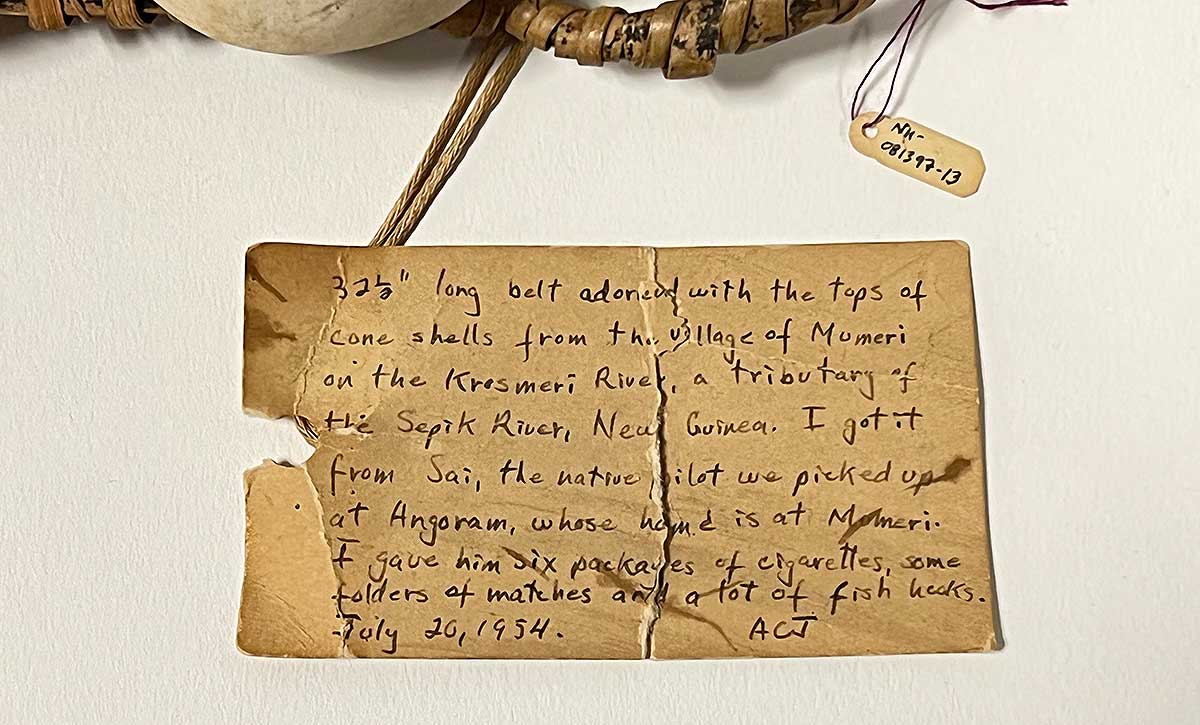 NH-
081397-13
32½" long belt adorned with the tops of
cone shells from the village of Mumeri
on the Krosmeri River, a tributary of
the Sepik River, New Guinea. I got it
from Sai, the native pilot we picked up
at Angoram, whose home is at Momeri.
I gave him six packages of cigarettes, some
folders of matches and a lot of fish hooks.
July 20, 1954. ACJ